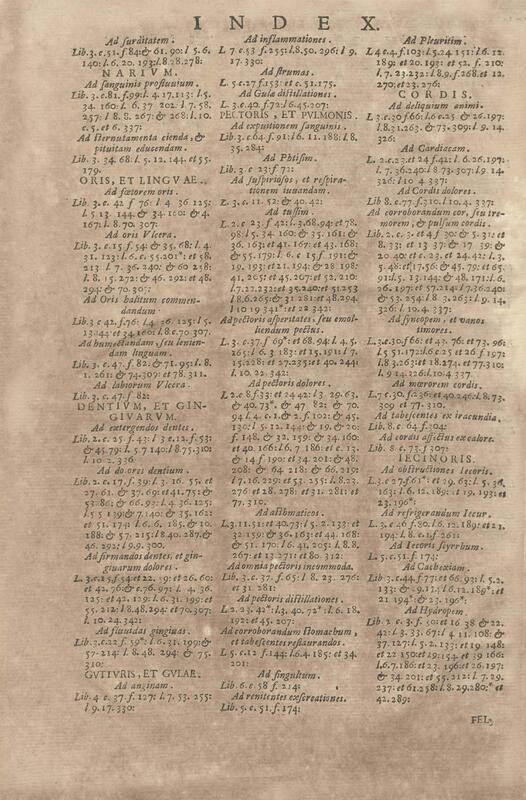 INDEX.
Ad surditatem.
Lib.3.c.51.f.84: & 61.90: l 5.6.
140: l.6.20.193: l.8.28.278:
NARIVM.
Ad sanguinis profluuium.
Lib.3.c.81.f.99: l.4.17.113: l.5.
34.160: l.6.37 202: l 7.58.
257: l 8.8.267: & 268: l.10.
c.5.et 6.337:
Ad sternutamenta cienda, &
pituitam educendam.
Lib.3.34.68: l 5.12.144: et 55.
179.
ORIS, ET LINGVAE.
Ad fœtorem oris.
Lib.3.c.42 f 76: l 4.36 125:
l 5 13.144. & 34 160: & 4.
167: l.8.70.307:
Ad oris Vlcera.
Lib.3.c.15.f.54: & 35.68: l.4.
Ad Oris halitum commen-
dandum.
Ad humectandam, seu lenien-
dam linguam.
Lib.3.c.47.f.82: & 71.95: l 8.
1.261: & 74.309: et 78.311.
Ad labiorum Vlcera.
Lib.3.c.47.f 82:
DENTIVM, ET GIN-
GIVARVM.
Ad extergendos dentes.
Lib.2.c.25 f.43: l 3 c.12.f.53:
& 45.79: l.5.7 140: l 8.75.310:
l 10 2.336:
Ad dolores dentium.
Lib.2.c.17.f.39: l.3.16.55.et
27.61. & 37.69: et 41.752: &
46.292: l 9.9.300.
Ad firmandos dentes, et gin-
giuarum dolores.
L.3.c.15.f.54: et 22.59: et 26.60:
55.212: l 8.48.294: et 70.307:
l 10.24.342:
Ad fluuidas gingiuas.
57-214: l 8.48.294: & 75.
310:
GVTTVRIS, ET GVLAE.
Ad anginam.
Lib.4 c.37.f.127: l 7.53.255:
l 9.17.330:
Ad inflammationes.
L 7 c.53 f.255: l.8.50.296: l 9.
17.330:
Ad strumas.
L.5.c.27.f.153: et c.51.175.
Ad Gulæ distillationes.
L.3.c.40.f.72: l 6.45.207:
PECTORIS, ET PVLMONIS.
Ad expuitionem sanguinis.
L.3.c.64 f.91: l 6.11.188: l 8.
35.284:
Ad Phtisim.
Lib.3 c.23: f 72:
Ad suspiriosos, et respira-
tionem iuuandam.
L.3.c.11.52: & 40.42:
Ad tussim.
L.2.c.23.f 42: l.3.68.94: et 78.
98: l 5.34.160: & 35.161: &
36.163: et 41.167: et 43.168:
& 55.179: l 6.c 15.f 191: &
19.193: et 21.194: & 28 198:
41.205: et 45.207: et 52.210:
l.7.27.232: et 35.240: et 51.253
l 8.6.265: & 31 281: et 48.294.
Ad pectoris asperitates, seu emol-
liendum pectus.
L.3.c.37.f 69": et 68.94: l 4.5.
165: l 6.3 183: et 15.191: l 7.
15.228: et 27.235: et 40.244:
l 10.22.342:
Ad pectoris dolores.
L.2.c.8.f.33: et 24 42: l 3.29.63.
& 40.73". & 47 82: & 70.
94: l 4.c 1. & 2 f.102: & 45.
130: l 5.12.144: & 19. & 20:
f 148. & 32.159: & 34.160:
et 40.166: l 6.7 186: et c.13.
& 14 f 190: et 34 201: & 48.
208: & 64 218: & 66.219:
l 7.16.229: et 53.255: l 8.23.
276: et 28.278: et 31.281: et
77.310.
Ad asthmaticos.
L 3.11.51: et 40.73: l 5.2.133: et
32 159: & 36.163: et 44.168:
& 51.170: l 6.41.205: l 8.8.
267: et 13.271: et 80.312:
Ad omnia pectoris incommoda.
Lib.3.c.37.65: l 8.23.276:
et 31.281:
Ad pectoris distillationes.
L 2.23.42": l 3.40.72": l 6.18.
192: et 45.207:
Ad corroborandum stomachum,
et tabescentes restaurandos.
L 5.c.12.f.144: l 6.4.185: et 34.
201:
Ad singultum.
Lib.6.c.58 f.214:
Ad renitentes exscreationes.
Lib.5.c.51.f.174:
Ad Pleuritim.
L 4.c.4.f.103: l 5.24 151: l 6.12.
189: et 20.193: et 52.f.210:
l 7.23.232: l 8.9.f.268: et 12.
270: et 23.276:
CORDIS.
Ad deliquium animi.
L 3.c.30 f.66: l 6 c.25 & 26.197:
l.8.31.263. & 73.309: l 9.14.
326:
Ad Cardiacam.
L 2.c.23.et 24 f.42: l.6.26.197:
l.7.36.240: l 8.73.307: l 9 14.
326: l 10 4.337:
Ad Cordis dolores.
Lib 8.c.77.f.310: l 10.4.337:
Ad corroborandum cor, seu tre-
morem, & pulsum cordis.
Lib.2.c.3.et 4 f.30: & 5.31: et
8.33: et 13.37: & 17 39: &
20 40: et c.23.et 24.42: l 3.
& 53.254: l 8 3.263: l 9.14.
326: l 10.4.337:
Ad syncopem, et vanos
timores.
L.3.c.30.f.66: et 43.76: et 73.96:
l 5 51.172: l 6.c 25 et 26 f 197:
l 8.3.263: et 18.274: et 77.310:
l 9 14.226: l 10 4.337.
Ad mœrorem cordis.
309: et 77.310:
Ad tabescentes ex iracundia.
Lib.8.c.64.f.304:
Ad cordis affectus ex calore.
Lib.8.c.73.f.307:
IECINORIS.
Ad obstructiones Iecoris.
L.3.c 27 f 61": et 29.63: l 5.36.
163: l 6.12.189: et 19.193: et
23.196":
Ad refrigerandum Iecur.
L.3.c.46 f.80: l 6.12.189: et 21.
194: l 8.c.1.f.261:
Ad Iecoris scyrrhum.
L.5.c.51.f.174:
Ad Cachexiam.
Lib 3.c.44.f.77: et 66.93: l.5.2.
21 194": & 23.196":
Ad Hydropem.
Lib 2 c.3.f.50: et 16 38 & 22.
42: l 3.33.67: l 4 11.108: &
37.127: l 5.2.133: et 19 148:
et 22 150: et 29: 154.et 39 166:
l.6.7.186: et 23.196: et 26.197:
& 34 201: et 55.212: l 7.29.
237: et 61.258: l 8.29.280:" et
42.289:
FEL,